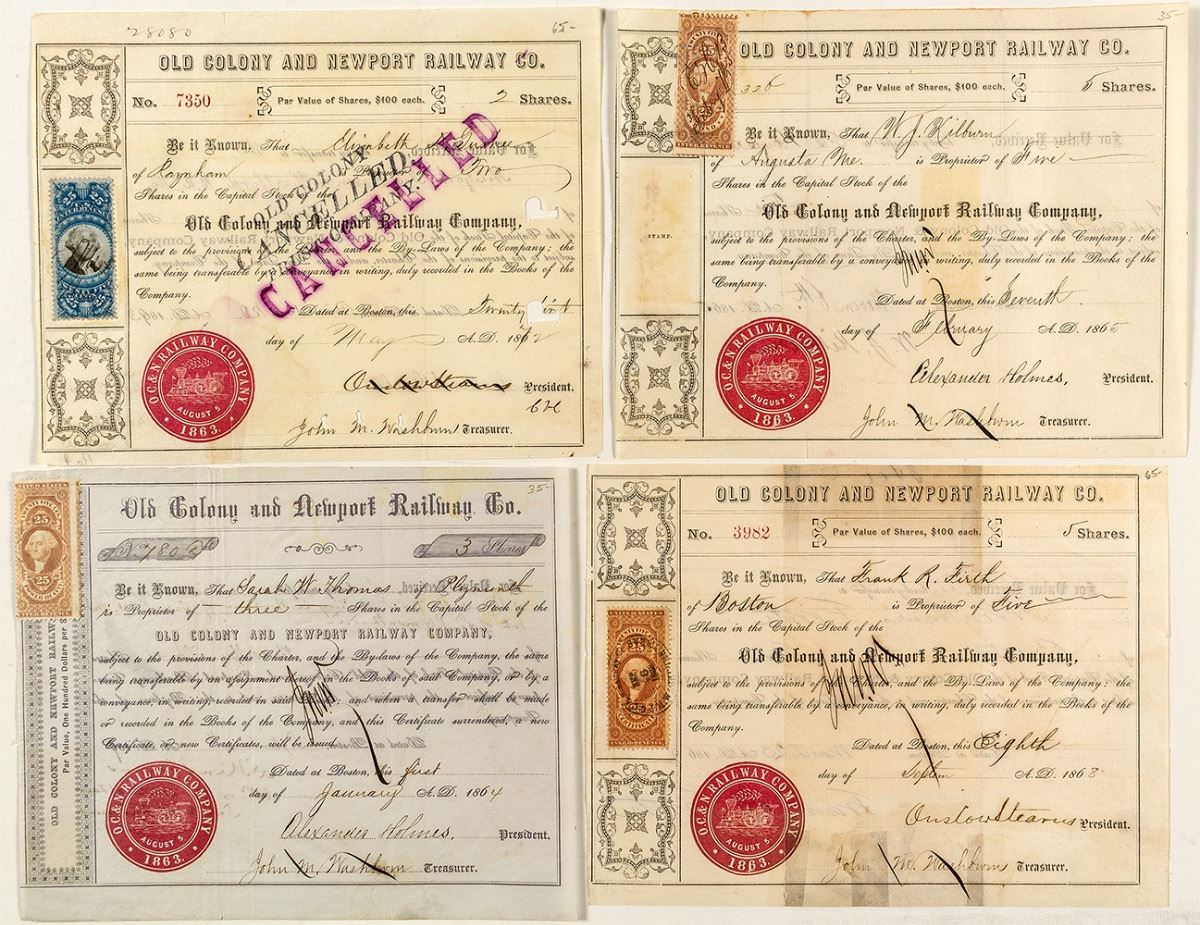 28080
65-
OLD COLONY AND NEWPORT RAILWAY CO.
No. 7350 Par Value of Shares, $100 each. 2 Shares.
Be it Known, That Elizabeth
of Raynham is Proprietor of Two
Shares in the Capital Stock of the
Old Colony and Newport Railway Company,
subject to the provisions of the Charter, and the By-Laws of the Company; the
same being transferable by a conveyance in writing, duly recorded in the Books of the
Company.
Dated at Boston, this Twenty first
day of May A.D. 1872
Onslow Stearns President.
John M. Washburn Treasurer.
OLD COLONY
CANCELLED
COMPANY.
CANCELLED
25
25
O C & N RAILWAY COMPANY
AUGUST 5
1863.
35-
OLD COLONY AND NEWPORT RAILWAY CO.
326 Par Value of Shares, $100 each. 5 Shares.
Be it Known, That W. J. Kilburn
of Augusta Me. is Proprietor of Five
Shares in the Capital Stock of the
Old Colony and Newport Railway Company,
subject to the provisions of the Charter, and the By-Laws of the Company; the
same being transferable by a conveyance in writing, duly recorded in the Books of the
Company.
Dated at Boston, this Seventh
day of February A.D. 1865
Alexander Holmes, President.
John M. Washburn Treasurer.
STAMP.
25
O C & N RAILWAY COMPANY
AUGUST 5.
1863.
35-
Old Colony and Newport Railway Co.
3 Shares
Be it Known, That Sarah W. Thomas of Plymouth
is Proprietor of three Shares in the Capital Stock of the
OLD COLONY AND NEWPORT RAILWAY COMPANY,
subject to the provisions of the Charter, and the By-laws of the Company, the same
being transferable by an assignment thereof in the Books of said Company, or by a
conveyance, in writing, recorded in said and when a transfer shall be made
or recorded in the Books of the Company, and this Certificate surrendered, a new
Certificate, or new Certificates, will be issued.
Dated at Boston, this first
day of January A.D. 1864
Alexander Holmes. President.
John M. Washburn Treasurer.
OLD COLONY AND NEWPORT RAILW
Par Value, One Hundred Dollars per S
25
25 25
O C & N RAILWAY COMPANY
AUGUST 5
1863.
65-
OLD COLONY AND NEWPORT RAILWAY CO.
No. 3982 Par Value of Shares, $100 each. 5 Shares.
Be it Known, That Frank R. Firth
of Boston is Proprietor of Five
Shares in the Capital Stock of the
Old Colony and Newport Railway Company,
subject to the provisions of the Charter, and the By-Laws of the Company; the
same being transferable by a conveyance, in writing, duly recorded in the Books of the
Company.
Dated at Boston, this Eighth
day of Septem A.D. 1868
Onslow Stearns President.
John M. Washburn Treasurer.
O C & N RAILWAY COMPANY
AUGUST 5.
1863.